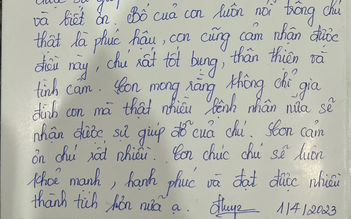 và biết ơn. Bố của con luôn nói trông chú
thật là phúc hậu, con cũng cảm nhận được
điều này, chú rất tốt bụng, thân thiện và
tình cảm. Con mong rằng không chỉ gia
đình con mà thật nhiều bệnh nhân nữa sẽ
nhận được sự giúp đỡ của chú. Con cảm
ơn chú rất nhiều. Con chúc chú sẽ luôn
khoẻ mạnh, hạnh phúc và đạt được nhiều
thành tích hơn nữa ạ. Thuỳ 1/4/2023